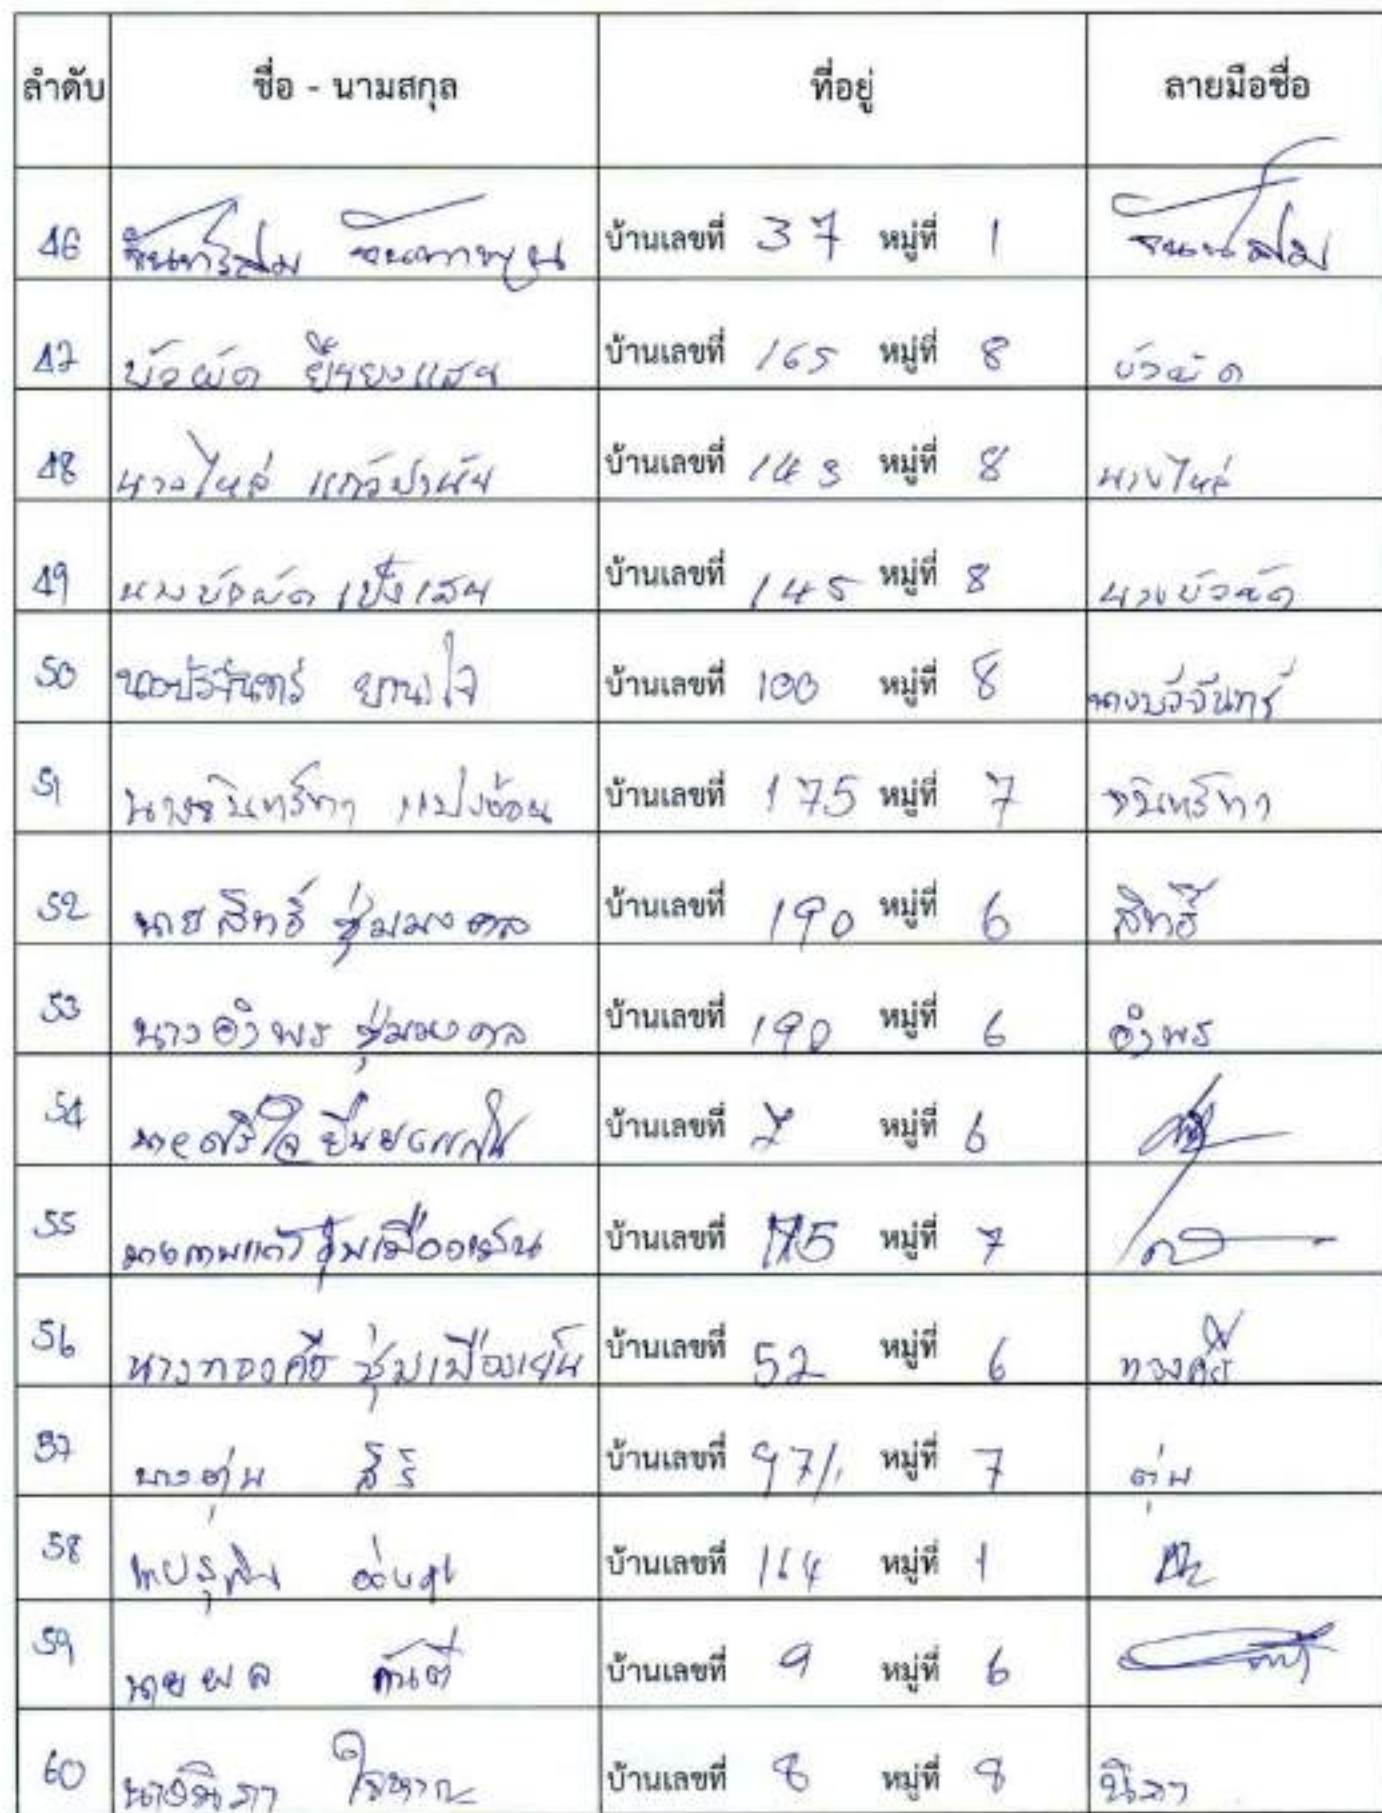 ลำดับ ชื่อ - นามสกุล ที่อยู่ ลายมือชื่อ
46 จันทร์สม บ้านเลขที่ 37 หมู่ที่ 1 จันทร์สม
47 บัวผัด ยืนยงแสน บ้านเลขที่ 165 หมู่ที่ 8 บัวผัด
48 นางไหล่ แก้วปานันท์ บ้านเลขที่ 143 หมู่ที่ 8 นางไหล่
49 นางบัวผัด เป็งเสน บ้านเลขที่ 145 หมู่ที่ 8 นางบัวผัด
50 นางบัวจันทร์ ยานใจ บ้านเลขที่ 100 หมู่ที่ 8 นางบัวจันทร์
51 นางจันทร์ทา แปงอ้อน บ้านเลขที่ 175 หมู่ที่ 7 จันทร์ทา
52 นายสิทธิ์ ชุ่มมงคล บ้านเลขที่ 190 หมู่ที่ 6 สิทธิ์
53 นางอำพร ชุ่มมงคล บ้านเลขที่ 190 หมู่ที่ 6 อำพร
54 ยืนยงแสน บ้านเลขที่ 7 หมู่ที่ 6
55 ชุ่มเมืองเย็น บ้านเลขที่ 175 หมู่ที่ 7
56 นางทองศรี ชุ่มเมืองเย็น บ้านเลขที่ 52 หมู่ที่ 6 ทองศรี
57 นางตุ่น สิริ บ้านเลขที่ 97/1 หมู่ที่ 7 ตุ่น
58 บ้านเลขที่ 164 หมู่ที่ 1
59 นายผล กันตี บ้านเลขที่ 9 หมู่ที่ 6
60 นางนิภา ใจหาญ บ้านเลขที่ 8 หมู่ที่ 8 นิภา